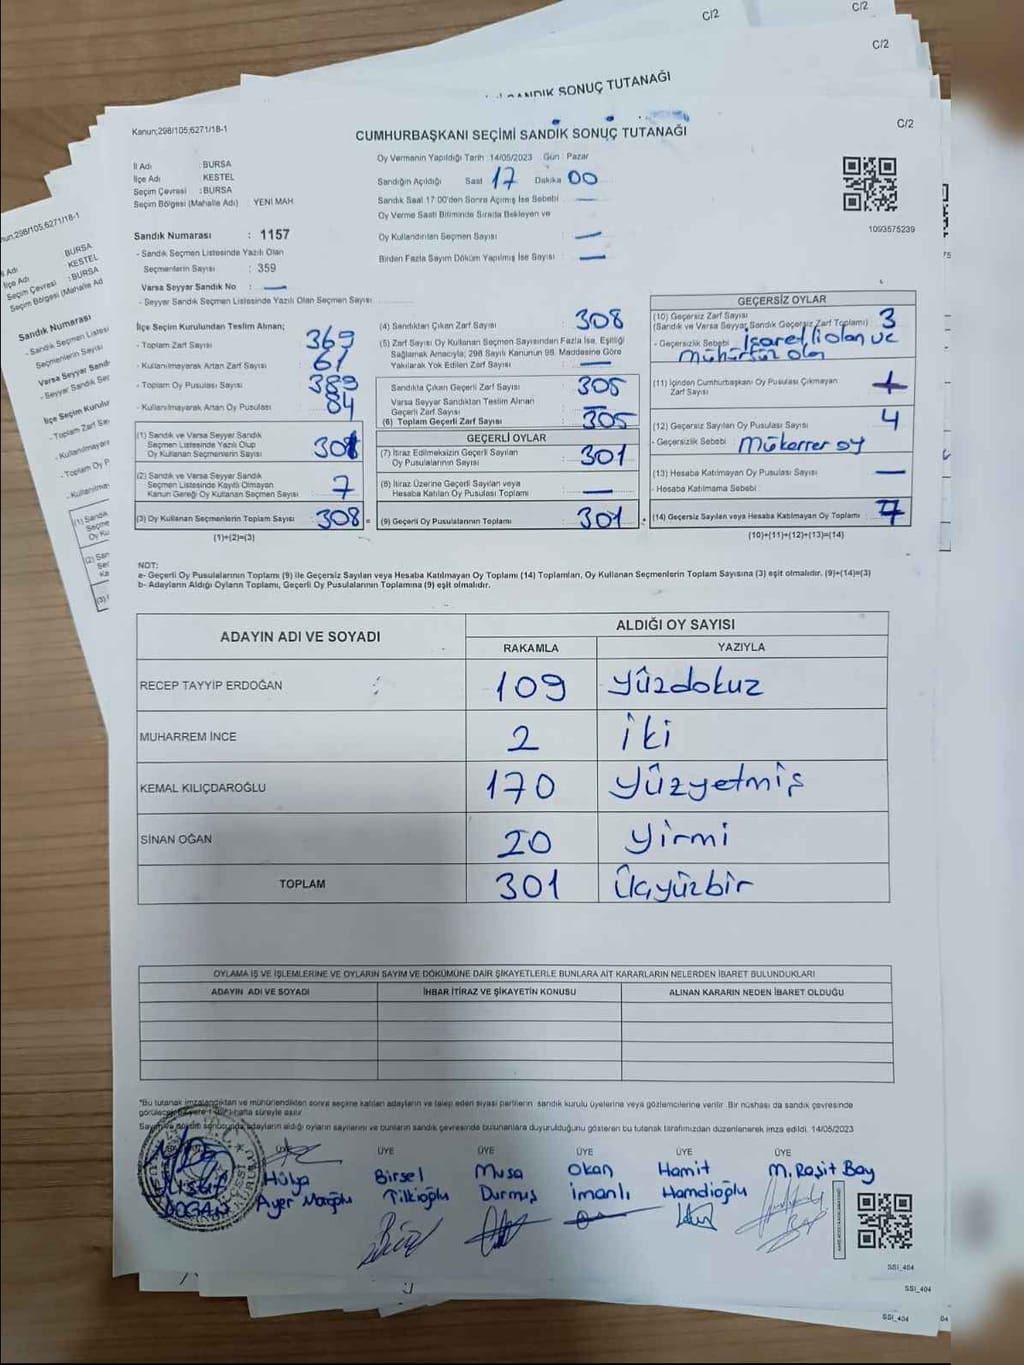 C/2
C/2
C/2
SANDIK SONUÇ TUTANAĞI
Kanun;298/105;6271/18-1
CUMHURBAŞKANI SEÇİMİ SANDIK SONUÇ TUTANAĞI
C/2
İl Adı : BURSA
İlçe Adı : KESTEL
Seçim Çevresi : BURSA
Seçim Bölgesi (Mahalle Adı) : YENİ MAH
Sandık Numarası : 1157
- Sandık Seçmen Listesinde Yazılı Olan
Seçmenlerin Sayısı : 359
Varsa Seyyar Sandık No : —
- Seyyar Sandık Seçmen Listesinde Yazılı Olan Seçmen Sayısı
Oy Vermenin Yapıldığı Tarih :14/05/2023 Gün : Pazar
Sandığın Açıldığı Saat 17 Dakika 00
Sandık Saat 17:00'den Sonra Açılmış İse Sebebi —
Oy Verme Saati Bitiminde Sırada Bekleyen ve
Oy Kullandırılan Seçmen Sayısı : —
Birden Fazla Sayım Döküm Yapılmış İse Sayısı : —
1093575239
İlçe Seçim Kurulundan Teslim Alınan;
- Toplam Zarf Sayısı : 369
- Kullanılmayarak Artan Zarf Sayısı : 61
- Toplam Oy Pusulası Sayısı : 389
- Kullanılmayarak Artan Oy Pusulası : 84
(1) Sandık ve Varsa Seyyar Sandık
Seçmen Listesinde Yazılı Olup
Oy Kullanan Seçmenlerin Sayısı
(2) Sandık ve Varsa Seyyar Sandık
Seçmen Listesinde Kayıtlı Olmayan
Kanun Gereği Oy Kullanan Seçmen Sayısı 7
(3) Oy Kullanan Seçmenlerin Toplam Sayısı 308 =
(1)+(2)=(3)
(4) Sandıktan Çıkan Zarf Sayısı : 308
(5) Zarf Sayısı Oy Kullanan Seçmen Sayısından Fazla İse, Eşitliği
Sağlamak Amacıyla; 298 Sayılı Kanunun 98. Maddesine Göre
Yakılarak Yok Edilen Zarf Sayısı : —
Sandıkta Çıkan Geçerli Zarf Sayısı : 305
Varsa Seyyar Sandıktan Teslim Alınan
Geçerli Zarf Sayısı : —
(6) Toplam Geçerli Zarf Sayısı : 305
GEÇERLİ OYLAR
(7) İtiraz Edilmeksizin Geçerli Sayılan
Oy Pusulalarının Sayısı : 301
(8) İtiraz Üzerine Geçerli Sayılan veya
Hesaba Katılan Oy Pusulası Toplamı : —
(9) Geçerli Oy Pusulalarının Toplamı : 301
GEÇERSİZ OYLAR
(10) Geçersiz Zarf Sayısı
(Sandık ve Varsa Seyyar Sandık Geçersiz Zarf Toplamı) : 3
- Geçersizlik Sebebi : İşaretli olan ve
mühürsüz olan
(11) İçinden Cumhurbaşkanı Oy Pusulası Çıkmayan
Zarf Sayısı
(12) Geçersiz Sayılan Oy Pusulası Sayısı : 4
- Geçersizlik Sebebi : Mükerrer oy
(13) Hesaba Katılmayan Oy Pusulası Sayısı : —
- Hesaba Katılmama Sebebi :
(14) Geçersiz Sayılan veya Hesaba Katılmayan Oy Toplamı : 7
(10)+(11)+(12)+(13)=(14)
NOT:
a- Geçerli Oy Pusulalarının Toplamı (9) ile Geçersiz Sayılan veya Hesaba Katılmayan Oy Toplamı (14) Toplamları, Oy Kullanan Seçmenlerin Toplam Sayısına (3) eşit olmalıdır. (9)+(14)=(3)
b- Adayların Aldığı Oyların Toplamı, Geçerli Oy Pusulalarının Toplamına (9) eşit olmalıdır.
ADAYIN ADI VE SOYADI
ALDIĞI OY SAYISI
RAKAMLA YAZIYLA
RECEP TAYYİP ERDOĞAN 109 yüzdokuz
MUHARREM İNCE 2 iki
KEMAL KILIÇDAROĞLU 170 yüzyetmiş
SİNAN OĞAN 20 yirmi
TOPLAM 301 üçyüzbir
OYLAMA İŞ VE İŞLEMLERİNE VE OYLARIN SAYIM VE DÖKÜMÜNE DAİR ŞİKAYETLERLE BUNLARA AİT KARARLARIN NELERDEN İBARET BULUNDUKLARI
ADAYIN ADI VE SOYADI İHBAR İTİRAZ VE ŞİKAYETİN KONUSU ALINAN KARARIN NEDEN İBARET OLDUĞU
"Bu tutanak imzalandıktan ve mühürlendikten sonra seçime katılan adayların ve talep eden siyasi partilerin sandık kurulu üyelerine veya gözlemcilerine verilir. Bir nüshası da sandık çevresinde
görülecek bir yere 1 (bir) hafta süreyle asılır
Sayım ve döküm sonucunda adayların aldığı oyların sayılarını ve bunların sandık çevresinde bulunanlara duyurulduğunu gösteren bu tutanak tarafımızdan düzenlenerek imza edildi. 14/05/2023
ÜYE ÜYE ÜYE ÜYE ÜYE ÜYE
Yusuf Hülya Birsel Musa Okan Hamit M. Raşit Bay
DOĞAN Ayer Tilkioğlu Durmuş İmanlı Hamdioğlu
SSİ_404
SSİ_404
SSİ_404
04
298/105;6271/18-1
BURSA
KESTEL
: BURSA
Seçim Bölgesi (Mahalle Ad
Sandık Numarası